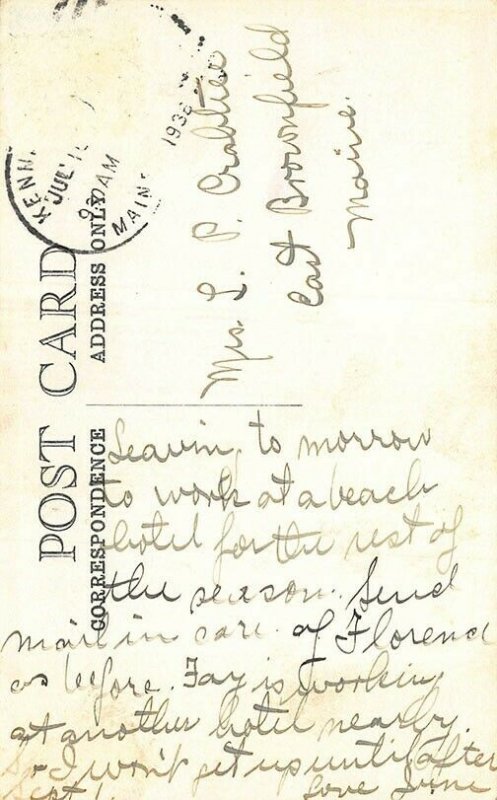 POST CARD
CORRESPONDENCE
ADDRESS ONLY
KENN
JUL
AM
1938
MAIN
Mrs. L. P. Crabtree
East Brownfield
Maine.
Leaving to morrow
to work at a beach
hotel for the rest of
the season. Send
mail in care of Florence
as before. Fay is working
at another hotel nearby.
So I won't get up until after
Sept 1. Love June